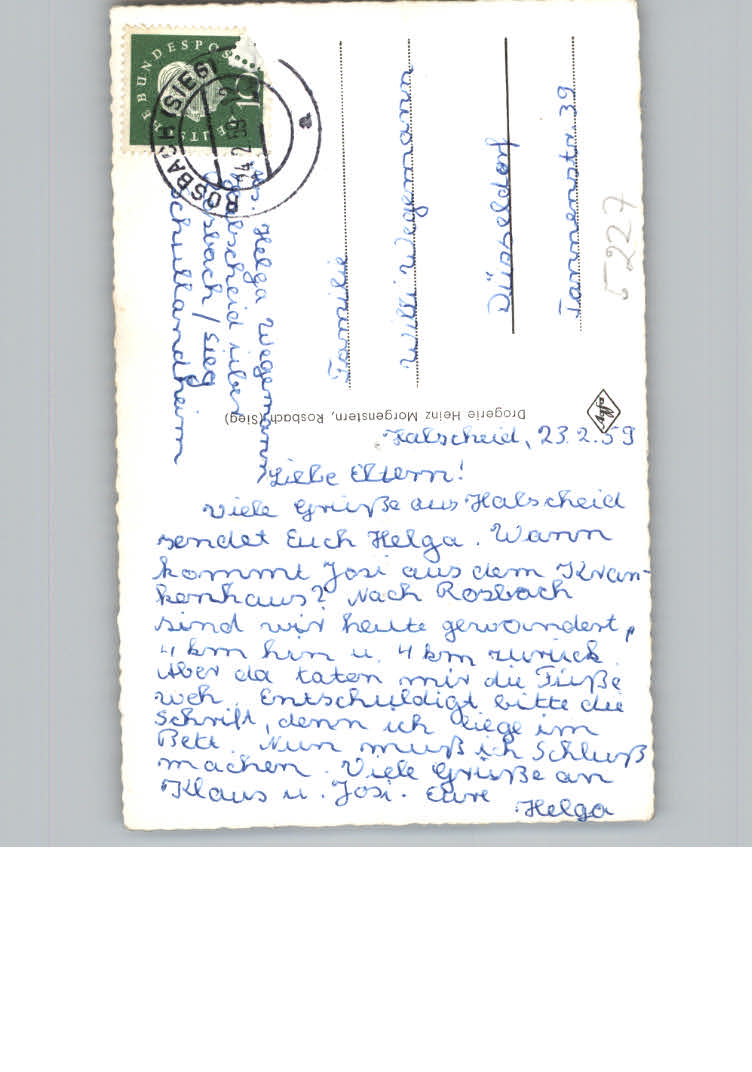 Halscheid, 23.2.59
Liebe Eltern!
Viele Grüße aus Halscheid
sendet Euch Helga. Wann
kommt Josi aus dem Kran-
kenhaus? Nach Rosbach
sind wir heute gewandert,
4 km hin u. 4 km zurück.
Aber da taten mir die Füße
weh. Entschuldigt bitte die
Schrift, denn ich liege im
Bett. Nun muß ich Schluß
machen. Viele Grüße an
Klaus u. Josi. Eure
Helga
Familie
Willi Wegemann
Düsseldorf
Tannenstr. 39
Helga Wegemann
Halscheid über
Rosbach/Sieg
Schullandheim
Drogerie Heinz Morgenstern, Rosbach(Sieg)
Agfa
5227
DEUTSCHE BUNDESPOST
10
ROSBACH (SIEG)
24.2.59-12
a